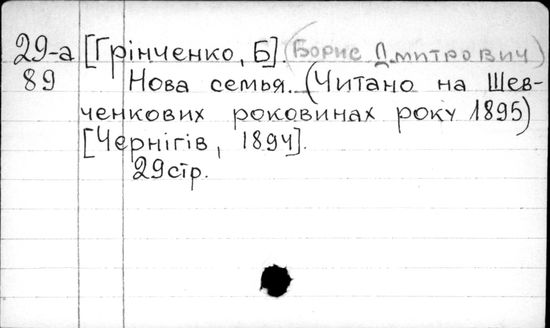 29-а [Грінченко, Б] (Борис Дмитрович)
89 Нова семья. (Читано на Шев-
ченкових роковинах року 1895)
[Чернігів, 1894].
29стр.